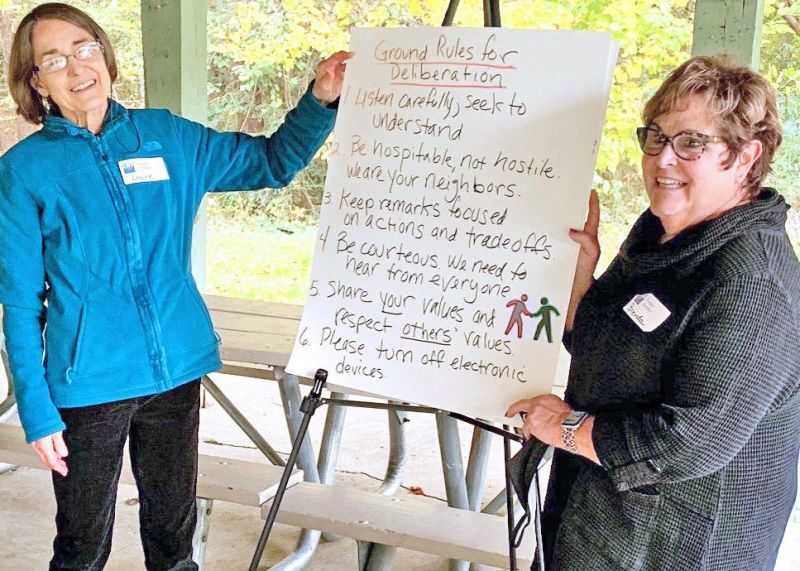 Ground Rules for
Deliberation
1 Listen carefully, seek to
understand
2 Be hospitable, not hostile.
We are your neighbors.
3 Keep remarks focused
on actions and tradeoffs.
4 Be courteous. We need to
hear from everyone
5. Share your values and
respect others' values.
6. Please turn off electronic
devices.